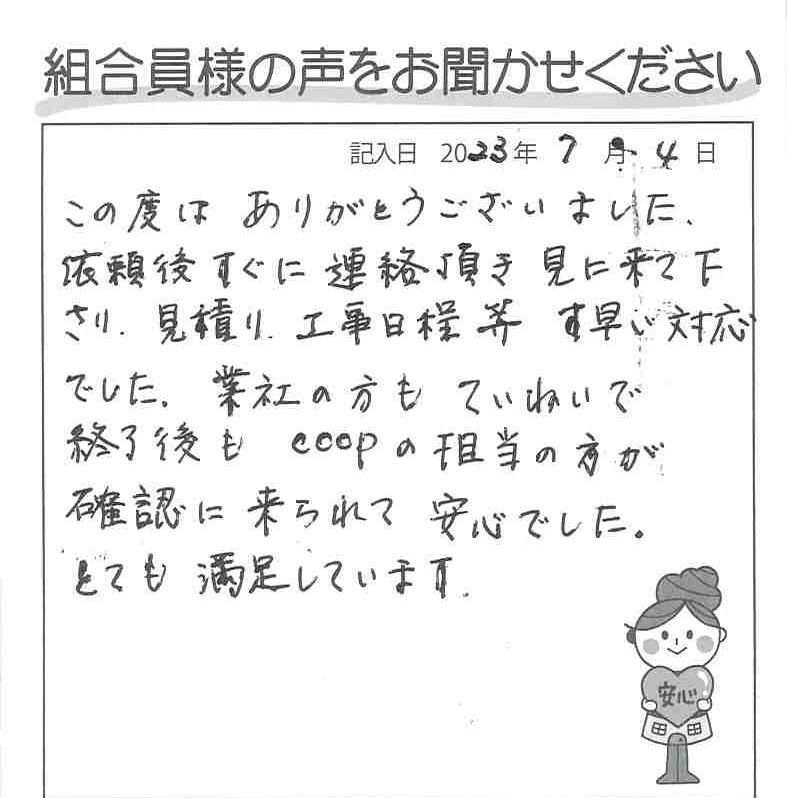 組合員様の声をお聞かせください
記入日 2023年 7月 4日
この度は ありがとうございました。
依頼後すぐに 連絡頂き 見に来て下
さり、見積り、工事日程等 す早い対応
でした。業社の方も ていねいで
終了後も coopの担当の方が
確認に 来られて 安心でした。
とても 満足しています。
安心